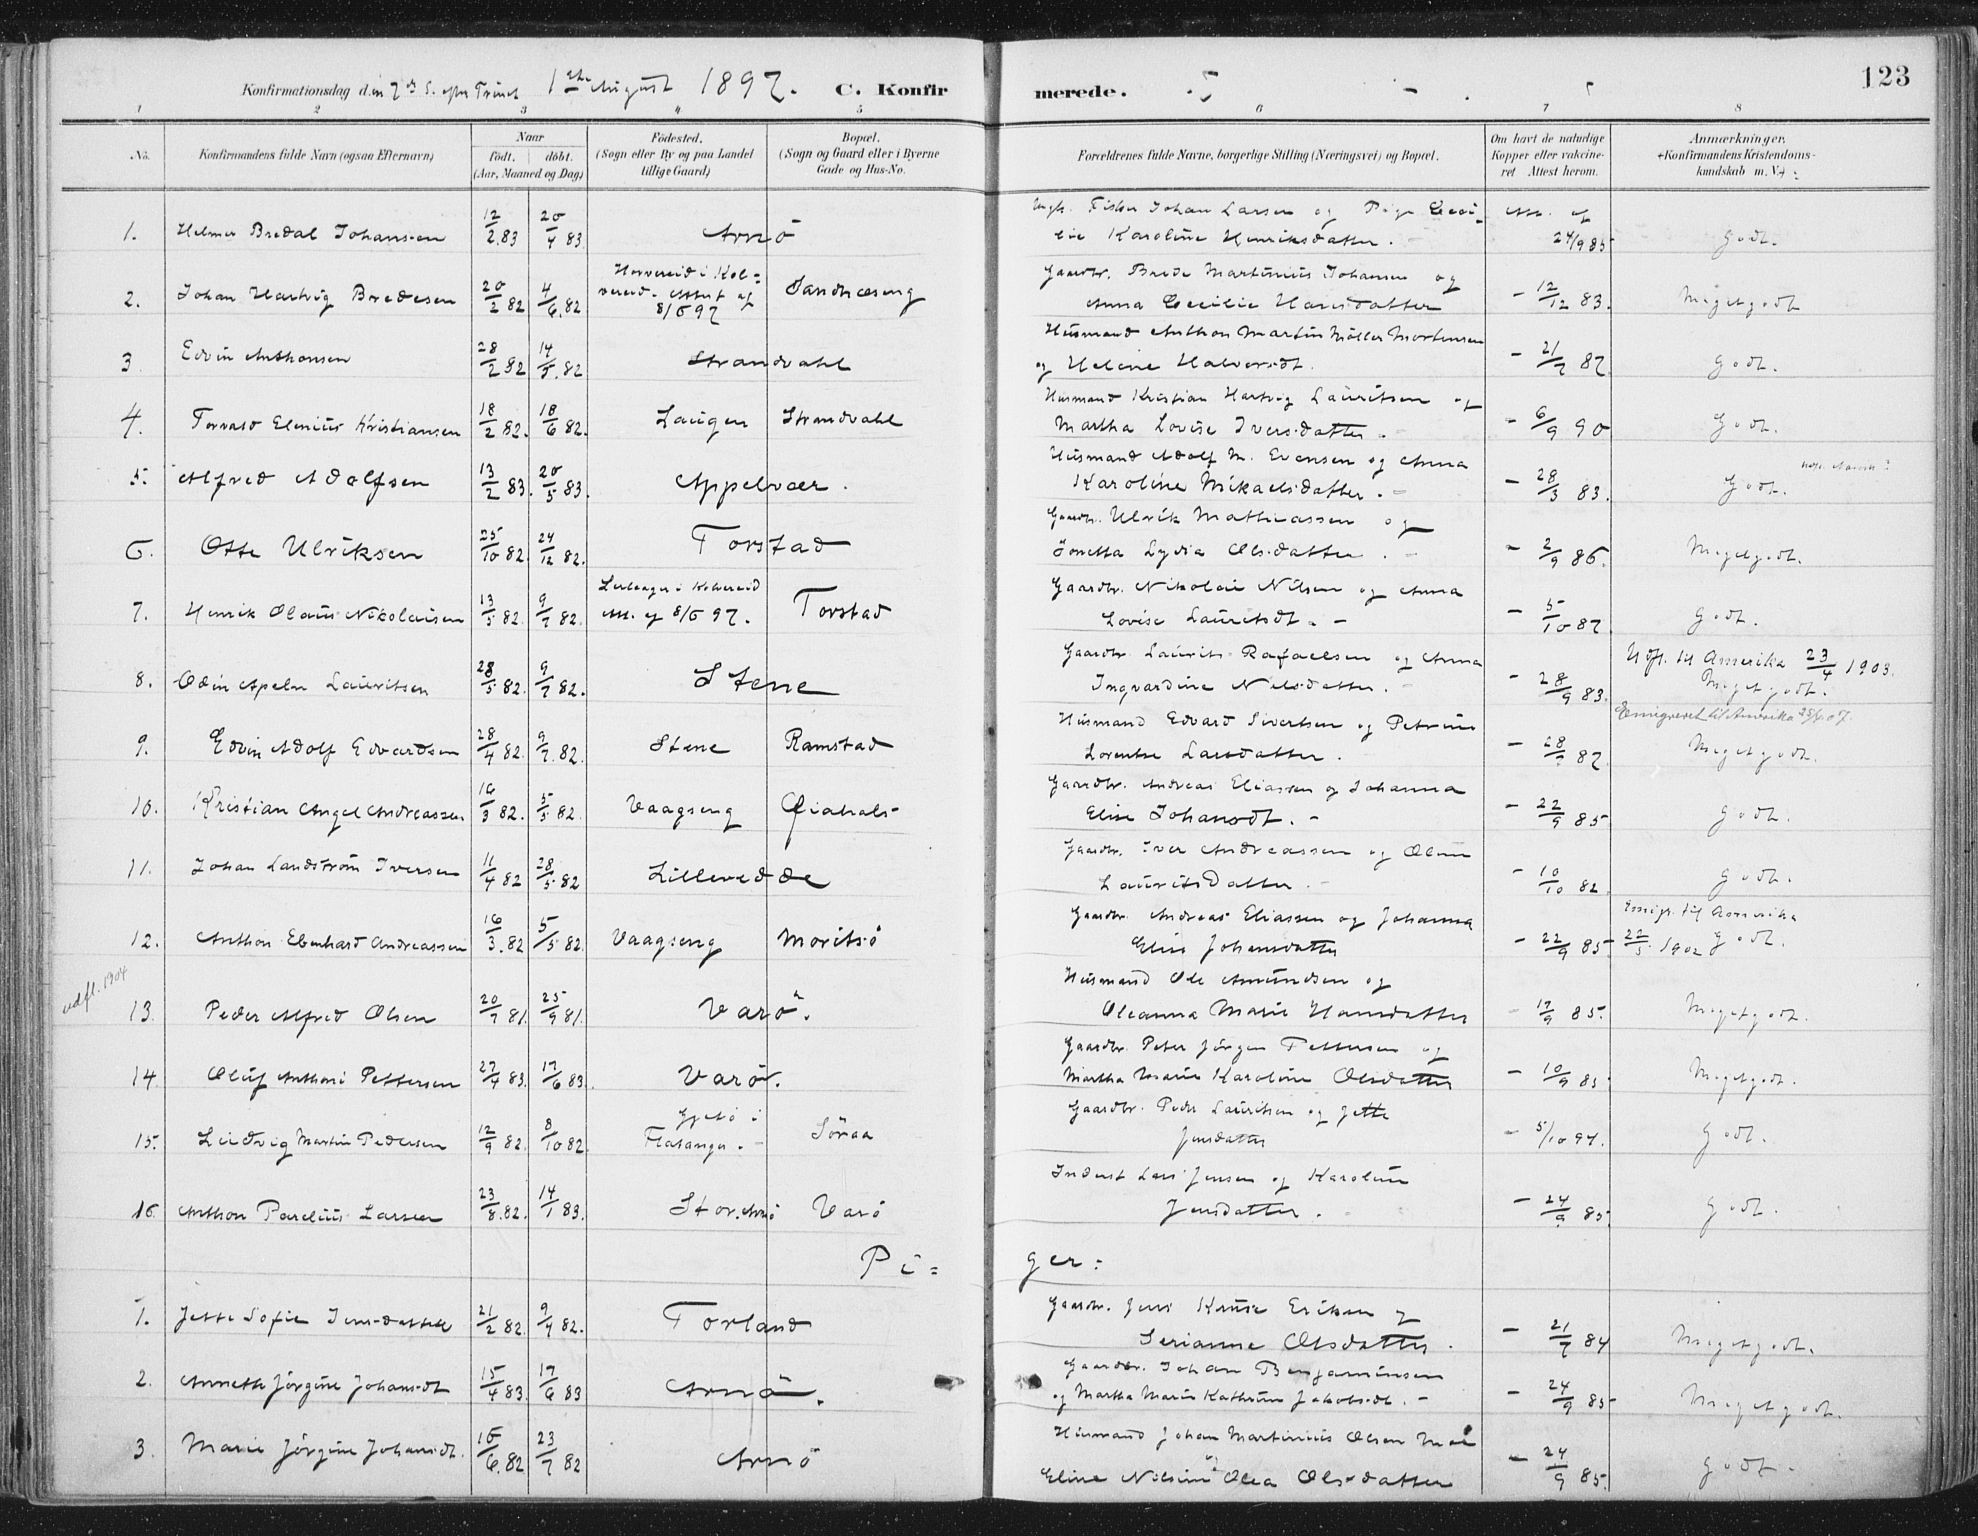 123
Konfirmationsdag den 7de S. efter Trinit 1ste August 1897. C. Konfirmerede.
1 2 3 4 5 6 7 8
No. Konfirmandens fulde Navn (ogsaa Efternavn) Naar födt. döbt. (Aar, Maaned og Dag) Födested. (Sogn eller By og paa Landet tillige Gaard) Bopæl. (Sogn og Gaard eller i Byerne Gade og Hus-No. Forældrenes fulde Navne, borgerlige Stilling (Næringsvei) og Bopæl. Om havt de naturlige Kopper eller vaccineret Attest herom. Anmærkninger, +Konfirmandens Kristendomskundskab m. V.+
1. Helmer Bredal Johansen 12/2 83 20/4 83 Arnö Ungk. Fisker Johan Larsen og Pige Cecilie Karoline Henriksdatter. Att. af 24/9 85 Godt.
2. Johan Hartvig Bredesen 20/2 82 4/6 82 Horvereid i Kolvereid. Attest af 8/6 97 Sandnæseng Gaardbr. Brede Martinius Johansen og Anna Cecilie Hansdatter - 12/12 83. Megetgodt
3. Edvin Anthonsen 28/2 82 14/5 82 Strandvahl Husmand Anthon Martin Möller Mortensen og Helene Halversdt. - 21/7 87 Godt.
4. Torvald Elenius Kristiansen 18/2 82. 18/6 82. Laugen Strandvahl Husmand Kristian Hartvig Lauritsen og Martha Lovise Iversdatter. - 6/9 90 Godt.
5. Alfred Adolfsen 13/2 83. 20/5 83. Appelvær. Husmand Adolf M. Evensen og Anna Karoline Mikaelsdatter. - 28/3 83. Godt.
6. Otte Ulriksen 25/10 82. 24/12 82. Torstad Gaardbr. Ulrik Mathiassen og Jonetta Lydia Olsdatter. - 2/9 86. Megetgodt.
7. Henrik Olaus Nikolaisen 13/5 82. 9/7 82. i Kolvereid Att. af 8/6 97. Torstad Gaardbr. Nikolai Nilsen og Anna Lovise Lauritsdt. - 5/10 87 Godt.
8. Odin Apeln Lauritsen 28/5 82. 9/7 82. Stene Gaardbr. Laurits Rafaelsen og Anna Ingvardine Nilsdatter. - 28/9 83. Udfl. til Amerika 23/4 1903. Megetgodt.
9. Edvin Adolf Edvardsen 28/4 82. 9/7. 82. Stene Ramstad Husmand Edvard Sivertsen og Petrine Lorentse Larsdatter. - 28/7 87 Emigreret til Amerika 25/6 07. Megetgodt.
10. Kristian Angel Andreassen 16/3 82. 5/5 82. Vaagseng Qvahals- Gaardbr. Andreas Eliassen og Johanna Elise Johansdt. - - 22/9 85 Godt.
11. Johan Landström Iversen 11/4 82 28/5 82 Lillevedde Gaardbr. Iver Andreassen og Oline Lauritsdatter. - - 10/10 82. Godt.
12. Anthon Eberhard Andreassen 16/3. 82 5/5 82. Vaagseng Moritsö Gaardbr. Andreas Eliassen og Johanna Elise Johansdatter - 22/9 85 Emigr. til Amerika 22/5 1902 Godt.
udfl. 1904
13. Peder Alfred Olsen 20/7 81. 25/9 81. Varö. Husmand Ole Amundsen og Oleanna Marie Hansdatter - 17/9 85. Megetgodt.
14 Oluf Anthoni Pettersen 27/4 83. 17/6 83. Varö. Gaardbr. Peter Jörgen Pettersen og Martha Marie Karoline Olsdatter - 10/9 85 Megetgodt.
15. Ludvig Martin Pedersen 12/9 82. 8/10 82. Gjetö i Flatanger. - Söraa Gaardbr. Peder Lauritsen og Jette Jensdatter - 5/10 97. Godt.
16. Anthon Parelius Larsen 23/8. 82. 14/1 83. Stor.Arnö Varö Inderst Lars Jensen og Karoline Jensdatter. - 24/9 85 Godt.
Piger:
1. Jette Sofie Jensdatter 21/2 82. 9/4 82. Forland Gaardbr. Jens Kruse Eriksen og Serianna Olsdatter. - 21/7 84 Megetgodt.
2. Annette Jörgine Johansdt 15/4 83. 17/6 83 Arnö. Gaardbr. Johan Benjaminsen og Martha Marie Kathrine Jakobsdt. - - 24/9 85 Megetgodt.
3. Marie Jörgine Johansdt. 16/6. 82 23/7 82 Arnö Husmand Johan Martinius Olsen og Eline Nilsine Olea Olsdatter - 24/9 85. Godt.